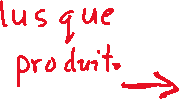 lus que
produit.